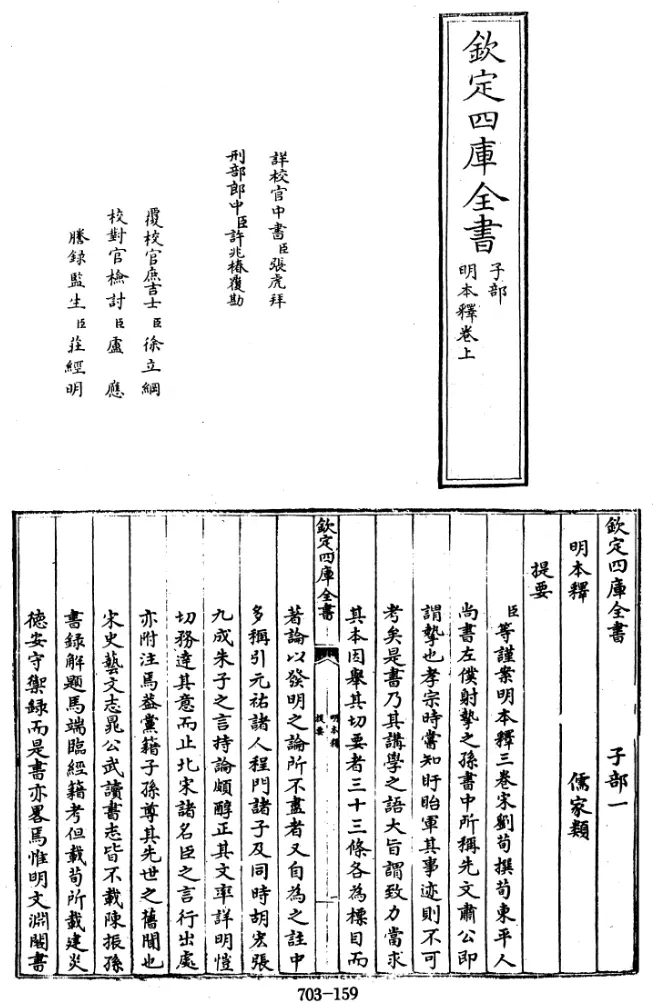 欽定四庫全書
子部
明本釋卷上
詳校官中書臣張虎拜
刑部郎中臣許兆椿覆勘
覆校官庶吉士臣徐立綱
校對官檢討臣盧應
騰錄監生臣莊經明
欽定四庫全書 子部一
明本釋 儒家類
提要
臣等謹案明本釋三卷宋劉荀撰荀東平人
尚書左僕射摯之孫書中所稱先文肅公即
謂摯也孝宗時嘗知盱眙軍其事迹則不可
考矣是書乃其講學之語大旨謂致力當求
其本因舉其切要者三十三條各為標目而
欽定四庫全書
明本釋
提要
著論以發明之論所不盡者又自為之註中
多稱引元祐諸人程門諸子及同時胡宏張
九成朱子之言持論頗醇正其文率詳明愷
切務達其意而止北宋諸名臣之言行出處
亦附注焉蓋黨籍子孫尊其先世之舊聞也
宋史藝文志晁公武讀書志皆不載陳振孫
書錄解題馬端臨經籍考但載荀所載建炎
德安守禦録而是書亦畧焉惟明文淵閣書
703-159